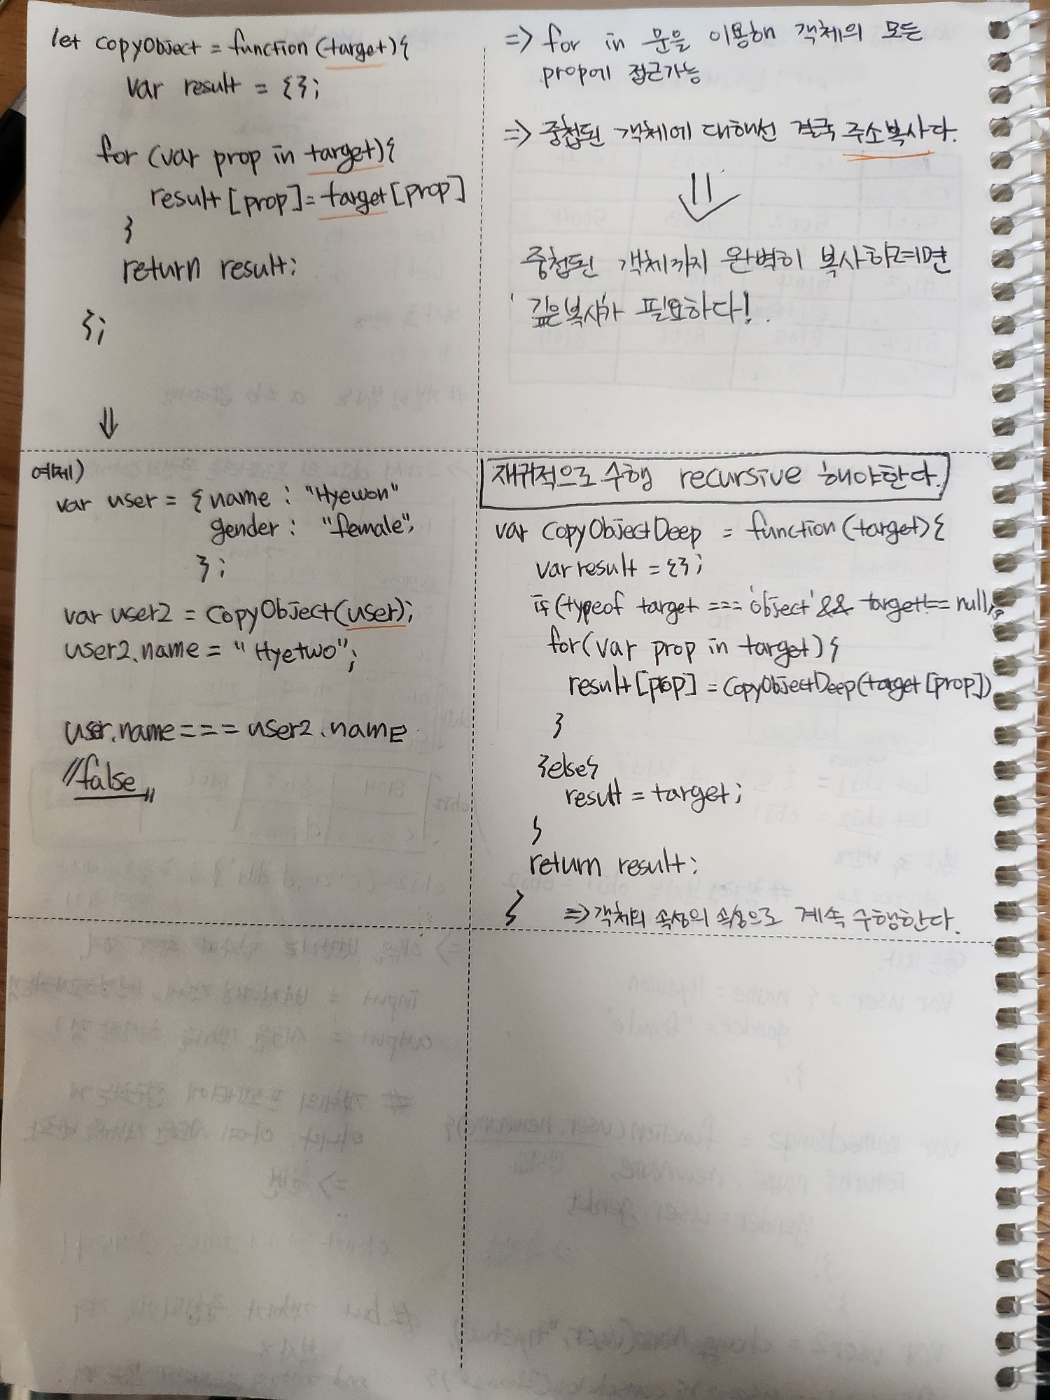 let copyObject = function (target){
var result = {};
for (var prop in target){
result [prop] = target [prop]
}
return result;
};
⇓
=> for in 문을 이용해 객체의 모든
prop에 접근가능
=> 중첩된 객체에 대해선 결국 주소복사다.
⇓
중첩된 객체까지 완벽히 복사하려면
깊은복사가 필요하다!
예제)
var user = { name : "Hyewon"
gender : "female",
};
var user2 = CopyObject(user);
user2.name = "Hyetwo";
user.name === user2.name
//false
재귀적으로 수행 recursive 해야한다.
var CopyObjectDeep = function (target){
var result = {};
if (typeof target === 'object' && target !== null
for (var prop in target) {
result [prop] = CopyObjectDeep(target [prop])
}
}else{
result = target;
}
return result;
} => 객체의 속성의 속성으로 계속 수행한다.